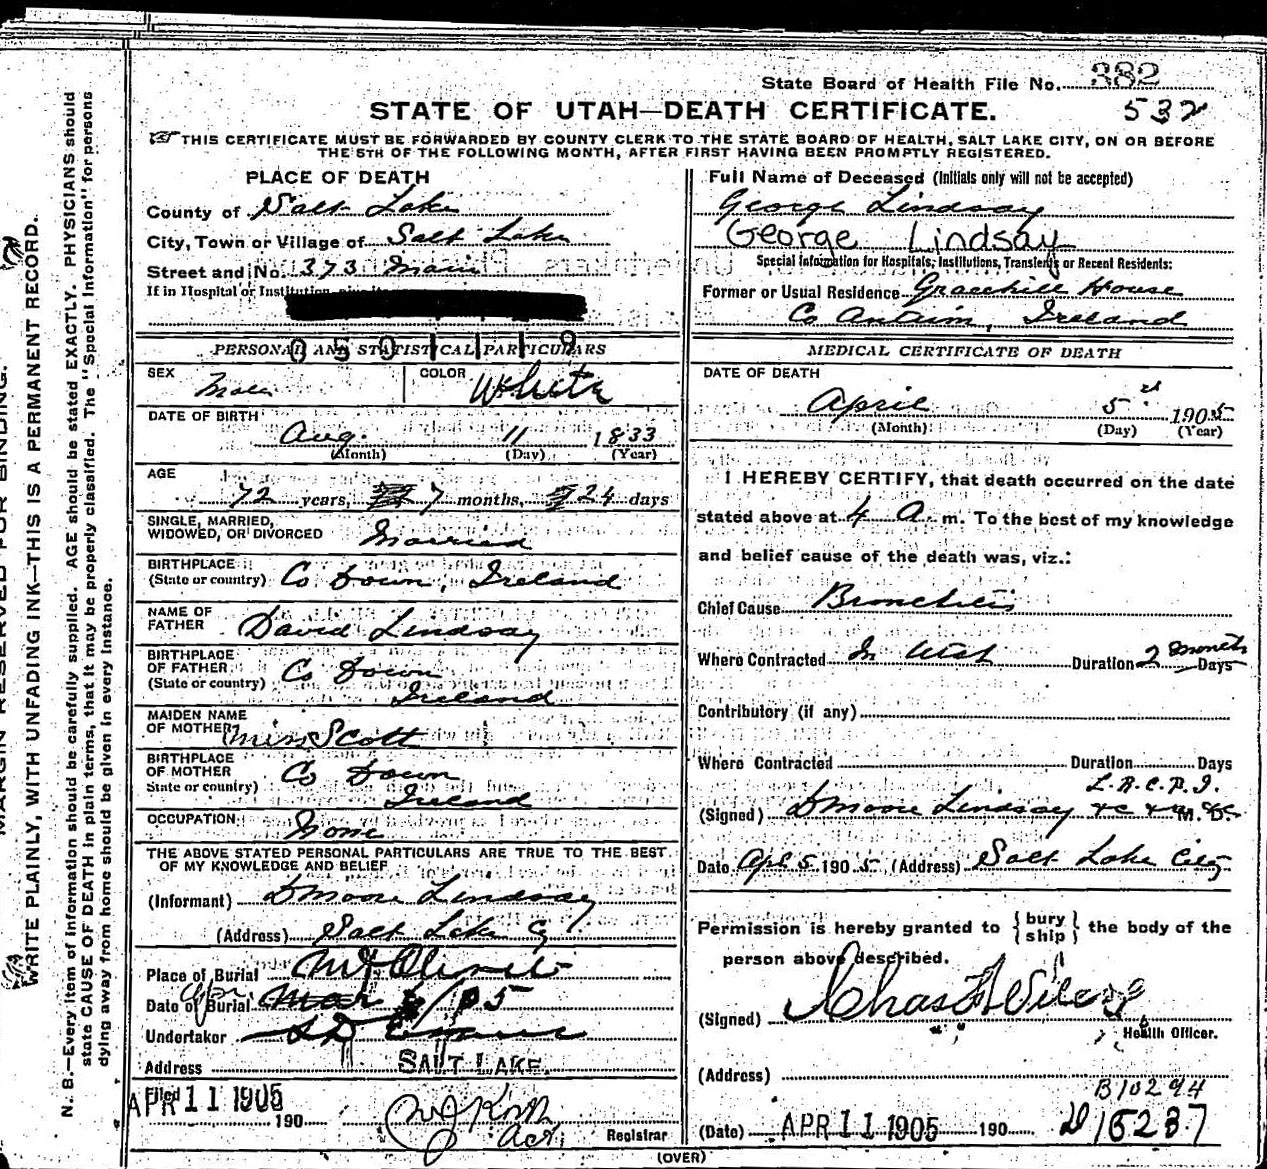 State Board of Health File No. 382
STATE OF UTAH—DEATH CERTIFICATE. 532
THIS CERTIFICATE MUST BE FORWARDED BY COUNTY CLERK TO THE STATE BOARD OF HEALTH, SALT LAKE CITY, ON OR BEFORE
THE 5TH OF THE FOLLOWING MONTH, AFTER FIRST HAVING BEEN PROMPTLY REGISTERED.
PLACE OF DEATH
County of Salt Lake
City, Town or Village of Salt Lake
Street and No. 373 Main
If in Hospital or Institution
050119
PERSONAL AND STATISTICAL PARTICULARS
SEX Male COLOR White
DATE OF BIRTH
Aug. 11 1833
(Month) (Day) (Year)
AGE
72 years, 7 months, 24 days
SINGLE, MARRIED,
WIDOWED, OR DIVORCED Married
BIRTHPLACE
(State or country) Co Down, Ireland
NAME OF
FATHER David Lindsay
BIRTHPLACE
OF FATHER
(State or country) Co Down
Ireland
MAIDEN NAME
OF MOTHER Miss Scott
BIRTHPLACE
OF MOTHER
State or country) Co Down
Ireland
OCCUPATION None
THE ABOVE STATED PERSONAL PARTICULARS ARE TRUE TO THE BEST
OF MY KNOWLEDGE AND BELIEF
(Informant) D Moore Lindsay
(Address) Salt Lake Cy
Place of Burial Mt Olivet
Date of Burial Apr Mar /05
Undertaker S D Evans
Address SALT LAKE.
Filed APR 11 1905 190
Registrar
Full Name of Deceased (Initials only will not be accepted)
George Lindsay
George Lindsay
Special Information for Hospitals, Institutions, Transients or Recent Residents:
Former or Usual Residence Gracehill House
Co Antrim, Ireland
MEDICAL CERTIFICATE OF DEATH
DATE OF DEATH
April 5 1905
(Month) (Day) (Year)
I HEREBY CERTIFY, that death occurred on the date
stated above at 4 A. m. To the best of my knowledge
and belief cause of the death was, viz.:
Chief Cause Bronchitis
Where Contracted In Utah Duration 2 months Days
Contributory (if any)
Where Contracted Duration Days
L.R.C.P.I.
(Signed) D Moore Lindsay &c &c M. D.
Date Apl 5 1905 (Address) Salt Lake City
Permission is hereby granted to { bury ship } the body of the
person above described.
(Signed) Chas F Wilcox
Health Officer.
(Address)
B10294
(Date) APR 11 1905 190
D15237
(OVER)
MARGIN RESERVED FOR BINDING.
WRITE PLAINLY, WITH UNFADING INK—THIS IS A PERMANENT RECORD.
N. B.—Every item of information should be carefully supplied. AGE should be stated EXACTLY. PHYSICIANS should
state CAUSE OF DEATH in plain terms, that it may be properly classified. The "Special Information" for persons
dying away from home should be given in every instance.